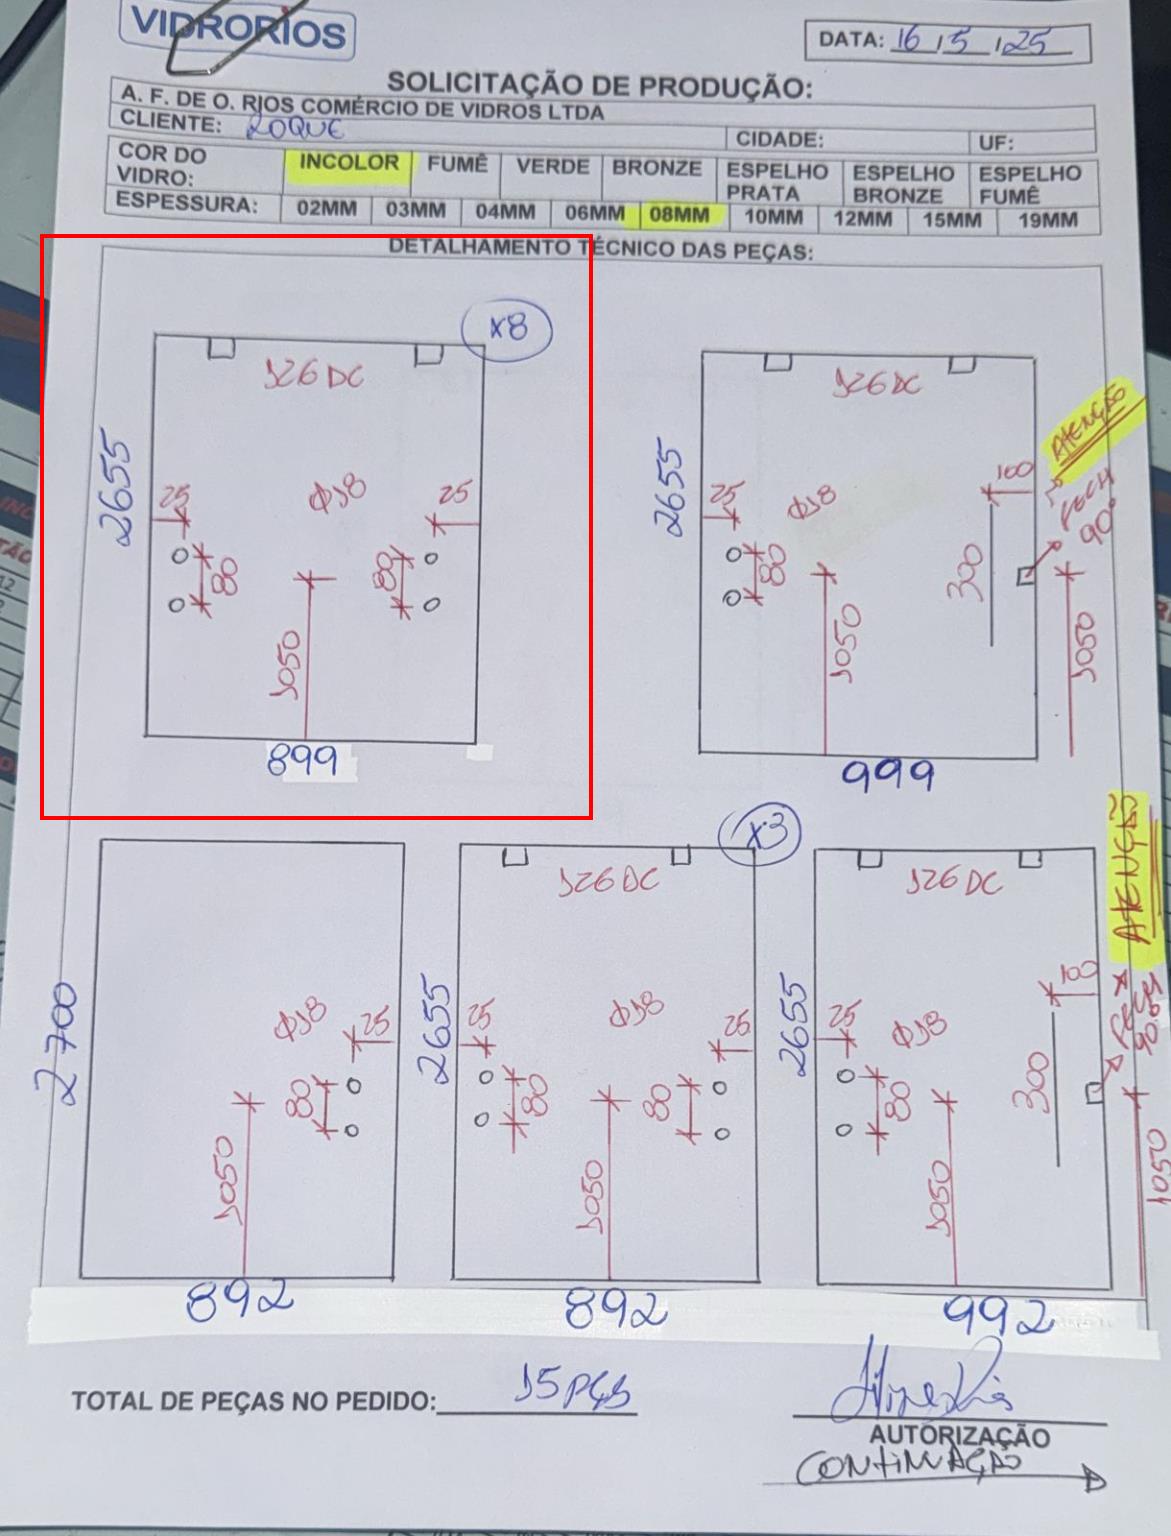 VIDRORIOS
DATA: 16/5/25
SOLICITAÇÃO DE PRODUÇÃO:
A. F. DE O. RIOS COMÉRCIO DE VIDROS LTDA
CLIENTE: ROQUE CIDADE: UF:
COR DO VIDRO: INCOLOR FUMÊ VERDE BRONZE ESPELHO PRATA ESPELHO BRONZE ESPELHO FUMÊ
ESPESSURA: 02MM 03MM 04MM 06MM 08MM 10MM 12MM 15MM 19MM
DETALHAMENTO TÉCNICO DAS PEÇAS:
x8
126 DC
2655
25
Φ18
25
80
80
1050
899
126 DC
ATENÇÃO
2655
25
Φ18
100
FECH
90°
80
300
1050
1050
999
2700
Φ18
25
80
1050
892
x3
126 DC
2655
25
Φ18
25
80
80
1050
892
126 DC
ATENÇÃO
2655
25
Φ18
100
FECH
90°
80
300
1050
1050
992
TOTAL DE PEÇAS NO PEDIDO: 15 PÇS
AUTORIZAÇÃO
CONTINUAÇÃO